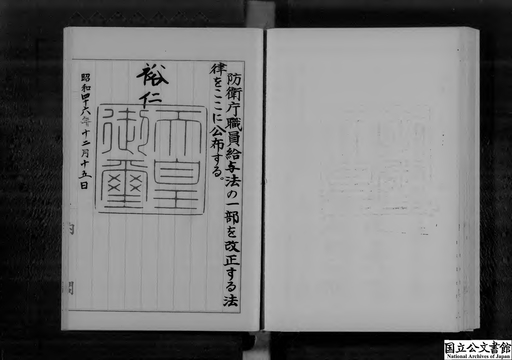 防衛庁職員給与法の一部を改正する法
律をここに公布する。
裕仁
天皇
御璽
昭和四十六年十二月十五日
国立公文書館
National Archives of Japan